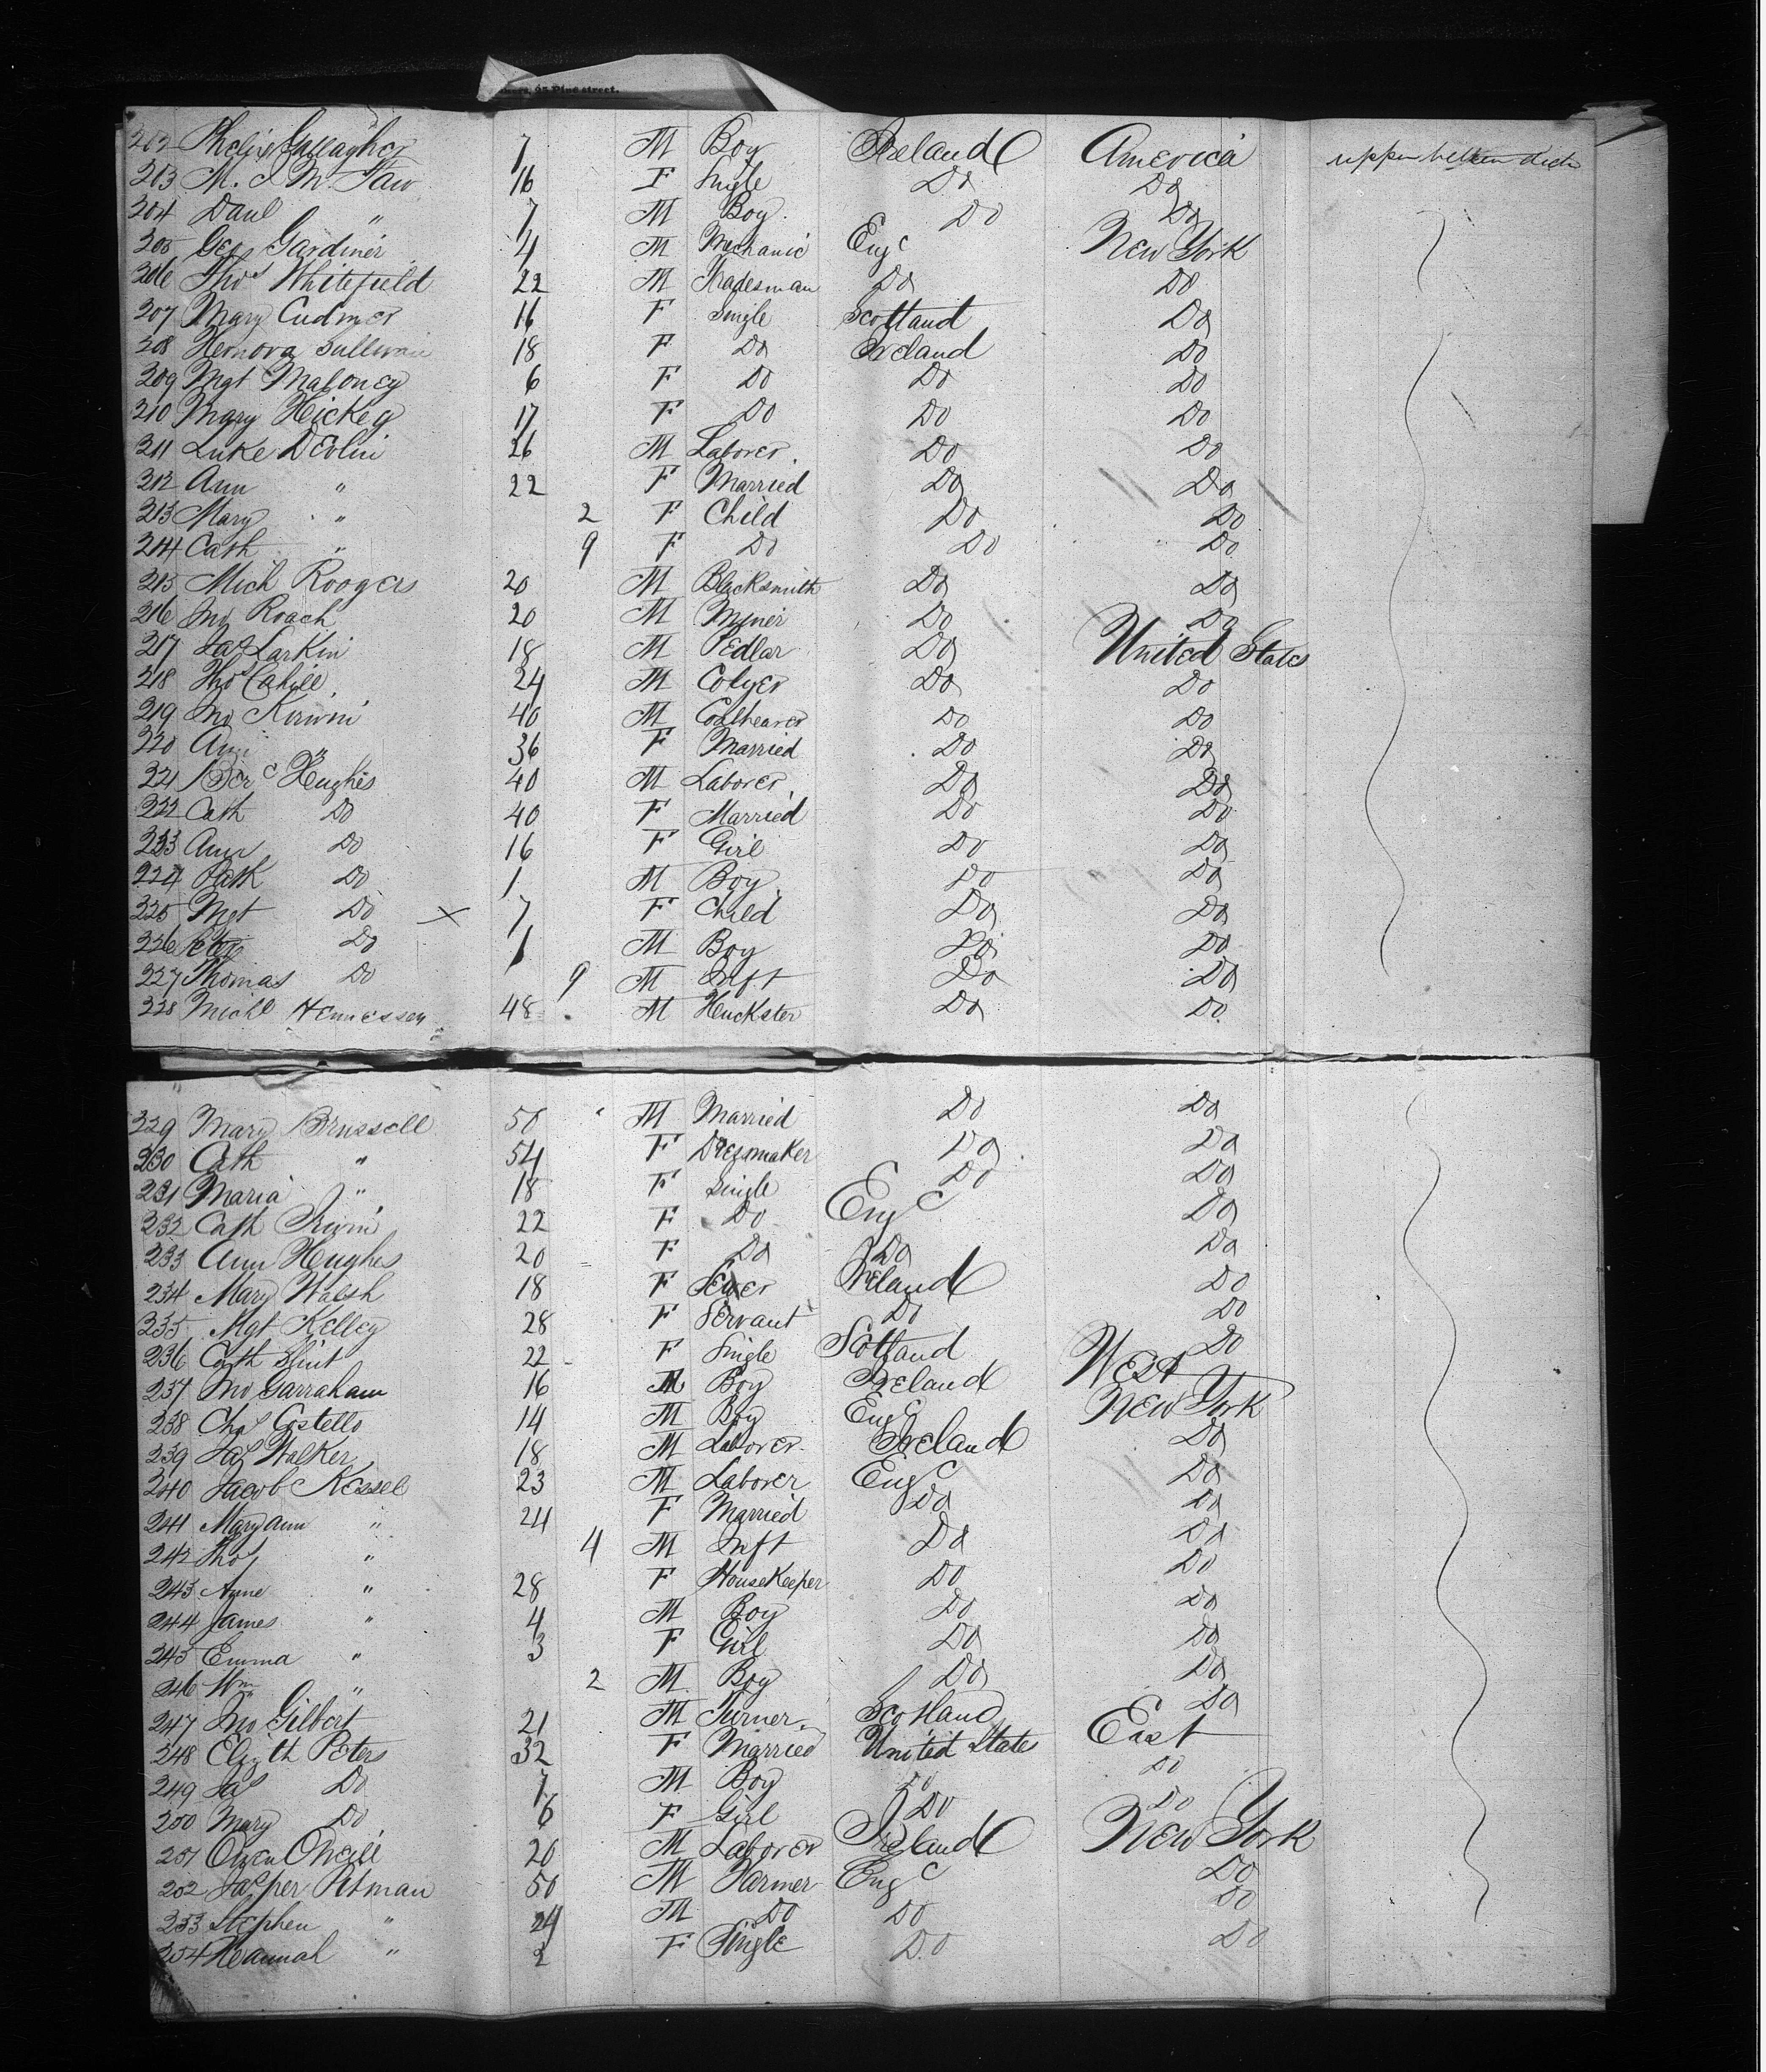 95 Pine street.
202 Gallagher 7 M Boy Ireland America upper between deck
203 M. 16 F Single Do Do
204 Danl " 7 M Boy Do Do
205 Geo Gardiner 4 M Mechanic Eng New York
206 Thos Whitefield 22 M Tradesman Do Do
207 Mary Cudmer 16 F Single Scotland Do
208 Honora Sullivan 18 F Do Ireland Do
209 Mgt Maloney 6 F Do Do Do
210 Mary Hickey 17 F Do Do Do
211 Luke Devlin 26 M Laborer Do Do
212 Ann " 22 F Married Do Do
213 Mary " 2 F Child Do Do
214 Cath " 9 F Do Do Do
215 Mich Roogers 20 M Blacksmith Do Do
216 Jno Roach 20 M Miner Do Do
217 Jas Larkin 18 M Pedlar Do United States
218 Thos Cahill 24 M Colyer Do Do
219 Jno Kirwin 40 M Coalheaver Do Do
220 Ann " 36 F Married Do Do
221 Hughes 40 M Laborer Do Do
222 Cath Do 40 F Married Do Do
223 Ann Do 16 F Girl Do Do
224 Patk Do 1 M Boy Do Do
225 Mgt Do x 7 F Child Do Do
226 Do 1 M Boy Do Do
227 Thomas Do 9 M Inft Do Do
228 Michl Hennessey 48 M Huckster Do Do
229 Mary Brussell 50 M Married Do Do
230 Cath " 54 F Dresmaker Do Do
231 Maria " 18 F Single Do Do
232 Cath Irwin 22 F Do Eng Do
233 Ann Hughes 20 F Do Do Do
234 Mary Walsh 18 F Ireland Do
235 Mgt Kelley 28 F Servant Do Do
236 Cath Flint 22 F Single Scotland Do
237 Jno Garraham 16 M Boy Ireland West
238 Chas Costello 14 M Boy Eng New York
239 Jas Walker 18 M Laborer Ireland Do
240 Jacob Kessel 23 M Laborer Eng Do
241 Maryann " 24 F Married Do Do
242 Thos " 4 M Inft Do Do
243 Anne " 28 F HouseKeeper Do Do
244 James " 4 M Boy Do Do
245 Emma " 3 F Girl Do Do
246 Wm " 2 M Boy Do Do
247 Jno Gilbert 21 M Turner Scotland Do
248 Elizth Peters 32 F Married United States East
249 Jas Do 7 M Boy Do Do
250 Mary Do 6 F Girl Do Do
251 Owen ONeill 20 M Laborer Ireland New York
252 Jasper Pitman 50 M Farmer Eng Do
253 Stephen " 24 M Do Do Do
254 Hannah " 2 F Single Do Do